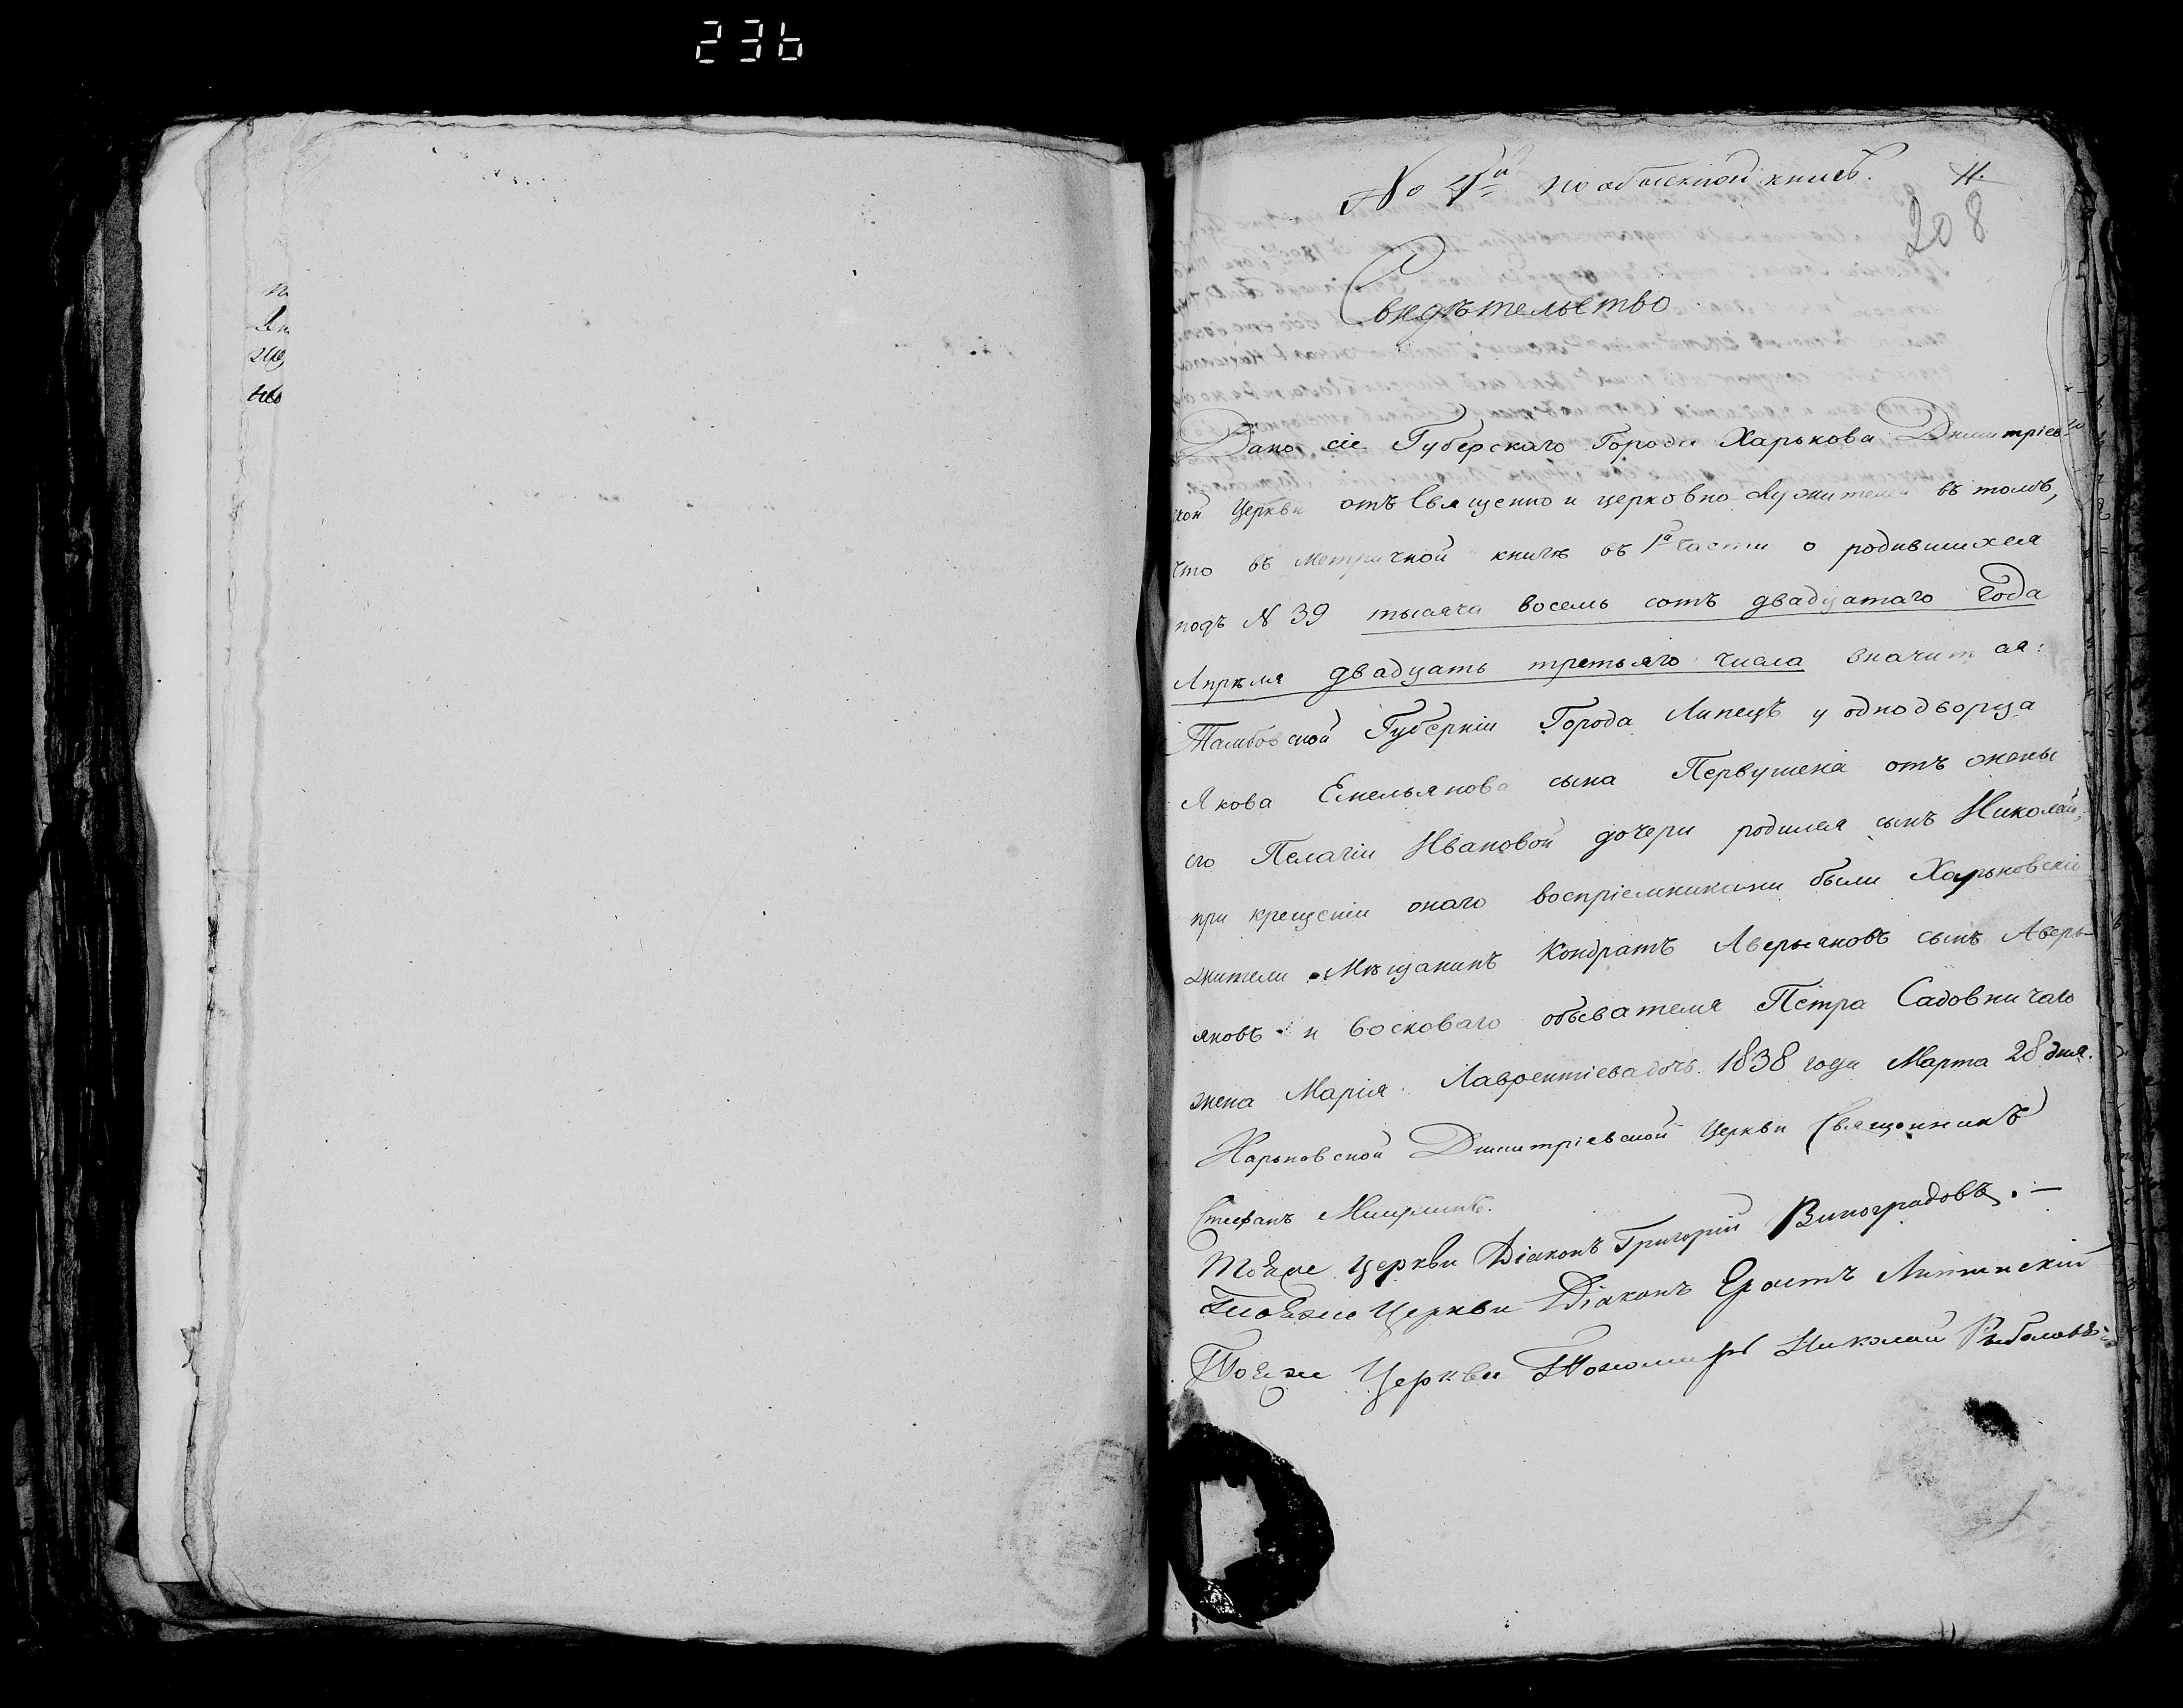 236
№ 4й по обыскной книгѣ.
11.
208
Свидѣтельство
Дано сіе Губерскаго Города Харькова Димитріев-
ской Церкви отъ Священно и церковно служителей въ томъ,
что въ метричной книгѣ въ 1й части о родившихся
подъ N 39 тысяча восемь сотъ двадцатаго года
Апрѣля двадцать третьяго числа значится:
Тамбовской Губерніи Города Липецъ у однодворца
Якова Емельянова сына Первушена отъ жены
его Пелагіи Ивановой дочери родился сынъ Николай;
при крещеніи онаго воспріемниками были Харьковскіе
жители Мѣщанинъ Кондратъ Аверьяновъ сынъ Аверь-
яновъ и Восковаго обывателя Петра Садовничаго
жена Марія Лаврентіева дочь. 1838 года Марта 28 дня.
Харьковской Димитріевской Церкви Священникъ
Стефанъ
Тойже Церкви Діаконъ Григорій Виноградовъ.—
Тойже Церкви Діаконъ Ерастъ
Тойже Церкви Пономарь Николай Рыболовъ